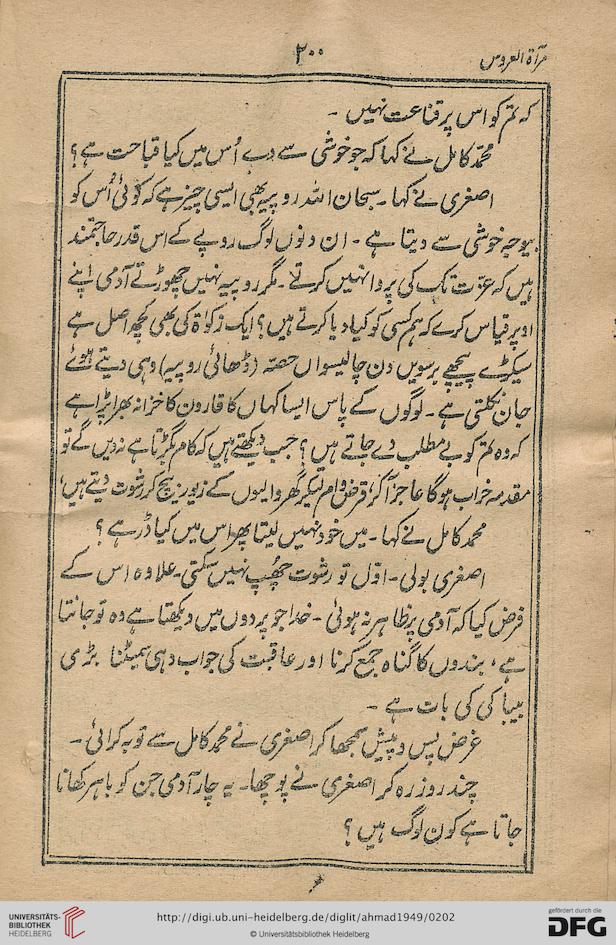 مرآۃ العروس
۲۰۰
کہ تم کو اس پر قناعت نہیں ۔
محمد کامل نے کہا کہ جو خوشی سے دے اُس میں کیا قباحت ہے؟
اصغری نے کہا ۔ سبحان اللہ روپیہ بھی ایسی چیز ہے کہ کوئی اُس کو
بیوجہ خوشی سے دیتا ہے ۔ ان دنوں لوگ روپے کے اس قدر حاجتمند
ہیں کہ عزّت تک کی پروا نہیں کرتے ۔ مگر روپیہ نہیں چھوڑتے آدمی اپنے
اوپر قیاس کرے کہ ہم کسی کو کیا دیا کرتے ہیں؟ ایک زکوٰۃ کی بھی کچھ اصل ہے
سیکڑے پیچھے برسویں دن چالیسواں حصّہ (ڈھائی روپیہ) وہی دیتے ہوئے
جان نکلتی ہے ۔ لوگوں کے پاس ایسا کہاں کا قارون کا خزانہ بھرا پڑا ہے
کہ وہ تم کو بے مطلب دے جاتے ہیں؟ جب دیکھتے ہیں کہ کام بگڑتا ہے نہ دیں گے تو
مقدمہ خراب ہوگا عاجز آکر قرض وام لیکر گھر والیوں کے زیور بیچ کر رشوت دیتے ہیں،
محمد کامل نے کہا ۔ میں خود نہیں لیتا پھر اس میں کیا ڈر ہے؟
اصغری بولی ۔ اوّل تو رشوت چھُپ نہیں سکتی ۔ علاوہ اس کے
فرض کیا کہ آدمی پر ظاہر نہ ہوئی ۔ خدا جو پردوں میں دیکھتا ہے وہ تو جانتا
ہے، بندوں کا گناہ جمع کرنا اور عاقبت کی جواب دہی سمیٹنا بڑی
بیباکی کی بات ہے ۔
غرض پس و پیش سمجھا کر اصغری نے محمد کامل سے توبہ کرائی ۔
چند روز رہ کر اصغری نے پوچھا ۔ یہ چار آدمی جن کو باہر کھانا
جاتا ہے کون لوگ ہیں؟
UNIVERSITÄTS-
BIBLIOTHEK
HEIDELBERG
http://digi.ub.uni-heidelberg.de/diglit/ahmad1949/0202
© Universitätsbibliothek Heidelberg
gefördert durch die
DFG